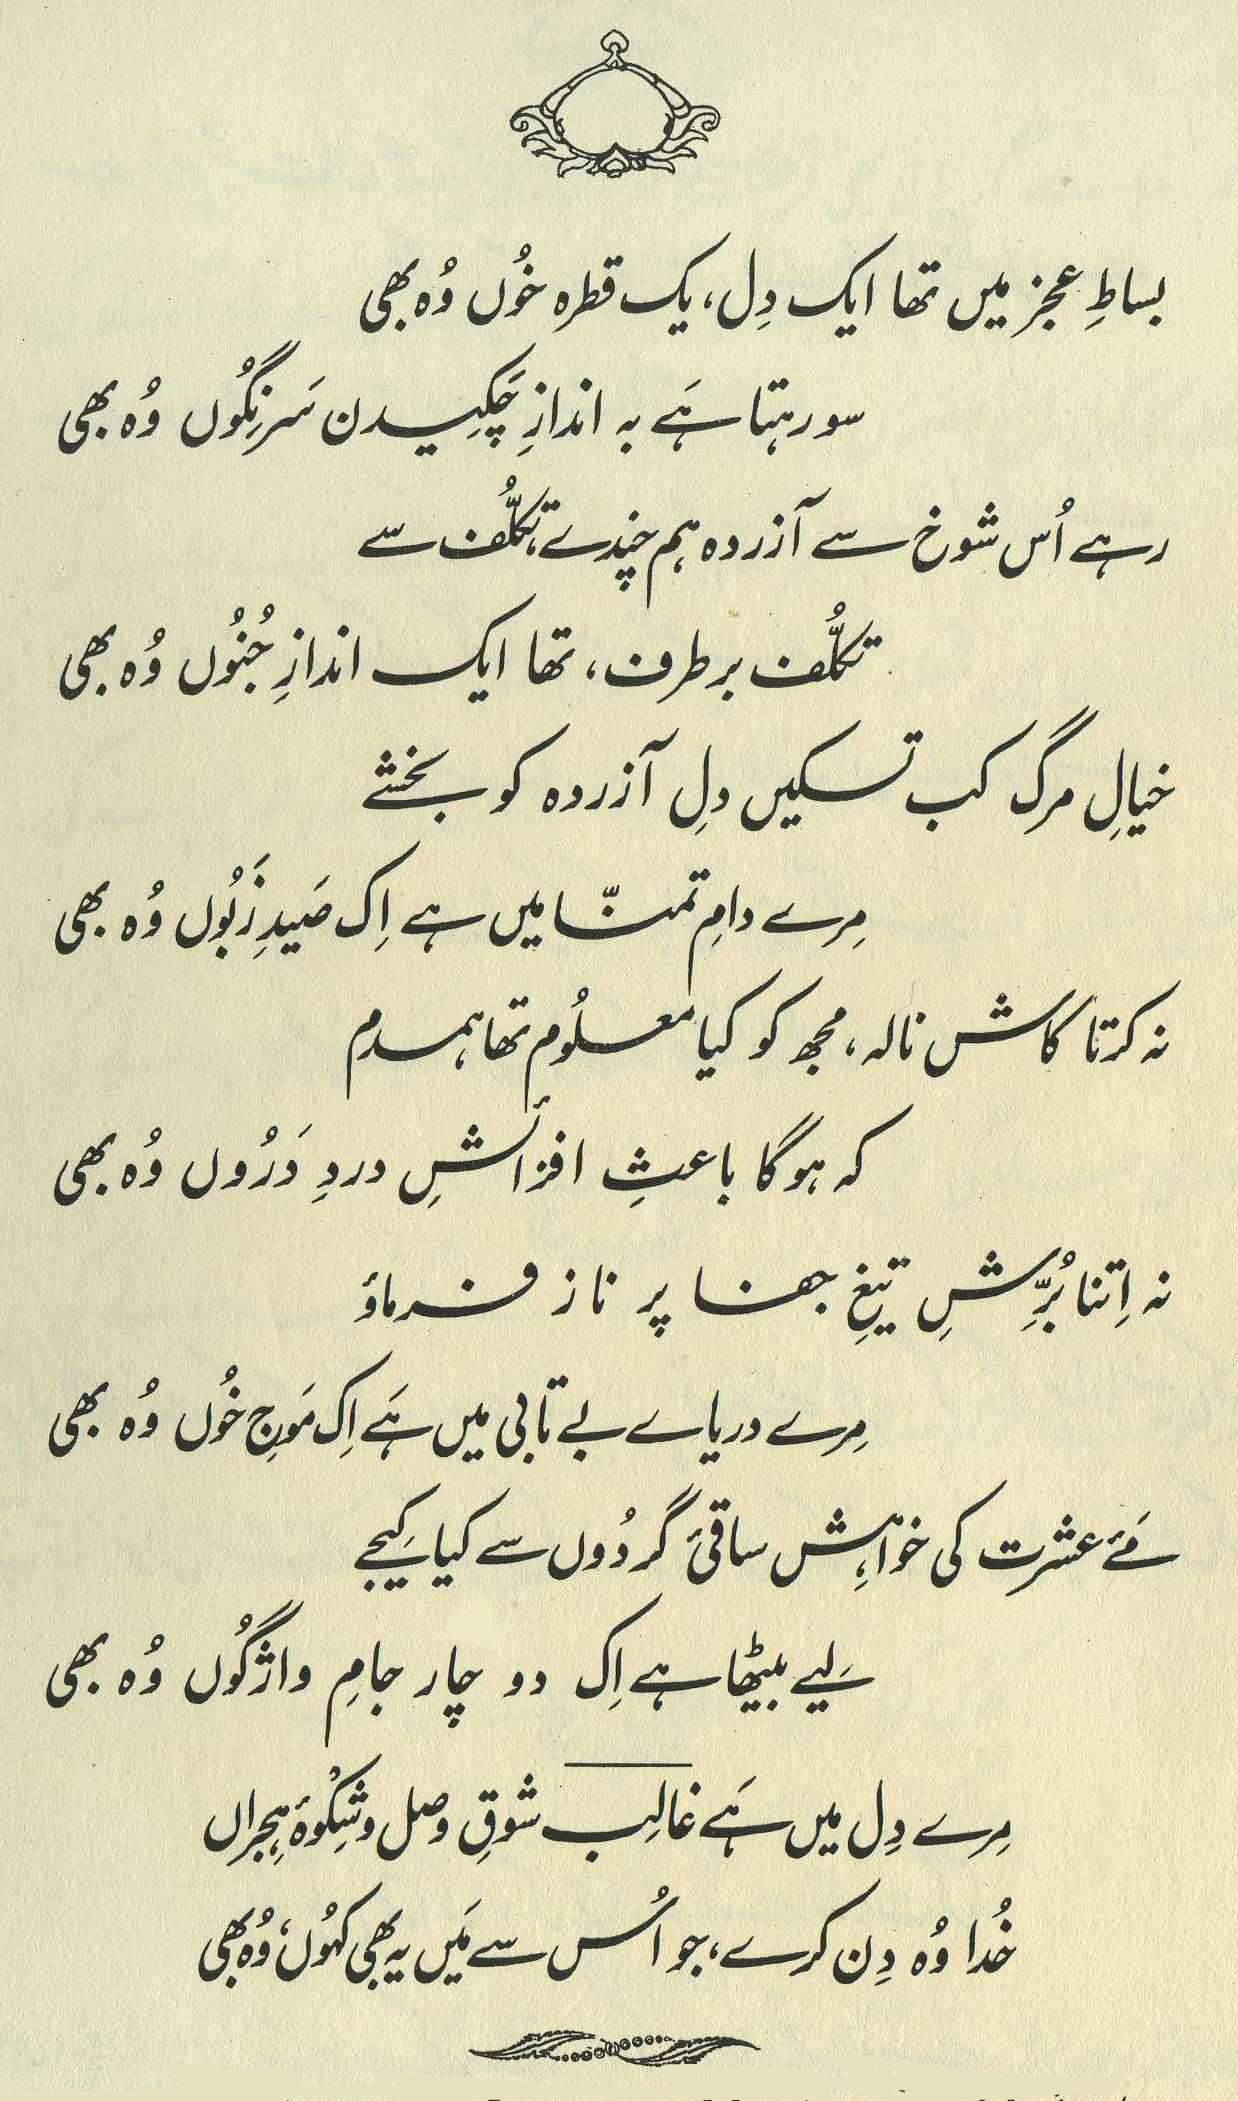 بساطِ عجز میں تھا ایک دِل، یک قطرہ خُوں وُہ بھی
سو رہتا ہَے بہ اندازِ چَکِیدن سَرنِگُوں وُہ بھی
رہے اُس شوخ سے آزردہ ہم چندے، تکلُّف سے
تکلُّف برطرف، تھا ایک اندازِ جُنُوں وُہ بھی
خیالِ مرگ کب تسکیں دلِ آزردہ کو بخشے
مِرے دامِ تمنّا میں ہے اِک صَیدِ زَبُوں وُہ بھی
نہ کرتا کاش نالہ، مجھ کو کیا معلُوم تھا ہمدم
کہ ہوگا باعثِ افزائشِ دردِ دَرُوں وُہ بھی
نہ اِتنا بُرِّشِ تیغِ جفا پر ناز فرماؤ
مِرے دریاے بے تابی میں ہَے اِک مَوجِ خُوں وُہ بھی
مَئے عشرت کی خواہِش ساقیٔ گردُوں سے کیا کِیجے
لِیے بیٹھا ہے اِک دو چار جامِ واژگُوں وُہ بھی
مِرے دِل میں ہَے غالِب شوقِ وصل و شِکْوۂ ہِجراں
خُدا وُہ دِن کرے، جو اُس سے مَیں یہ بھی کہُوں، وُہ بھی